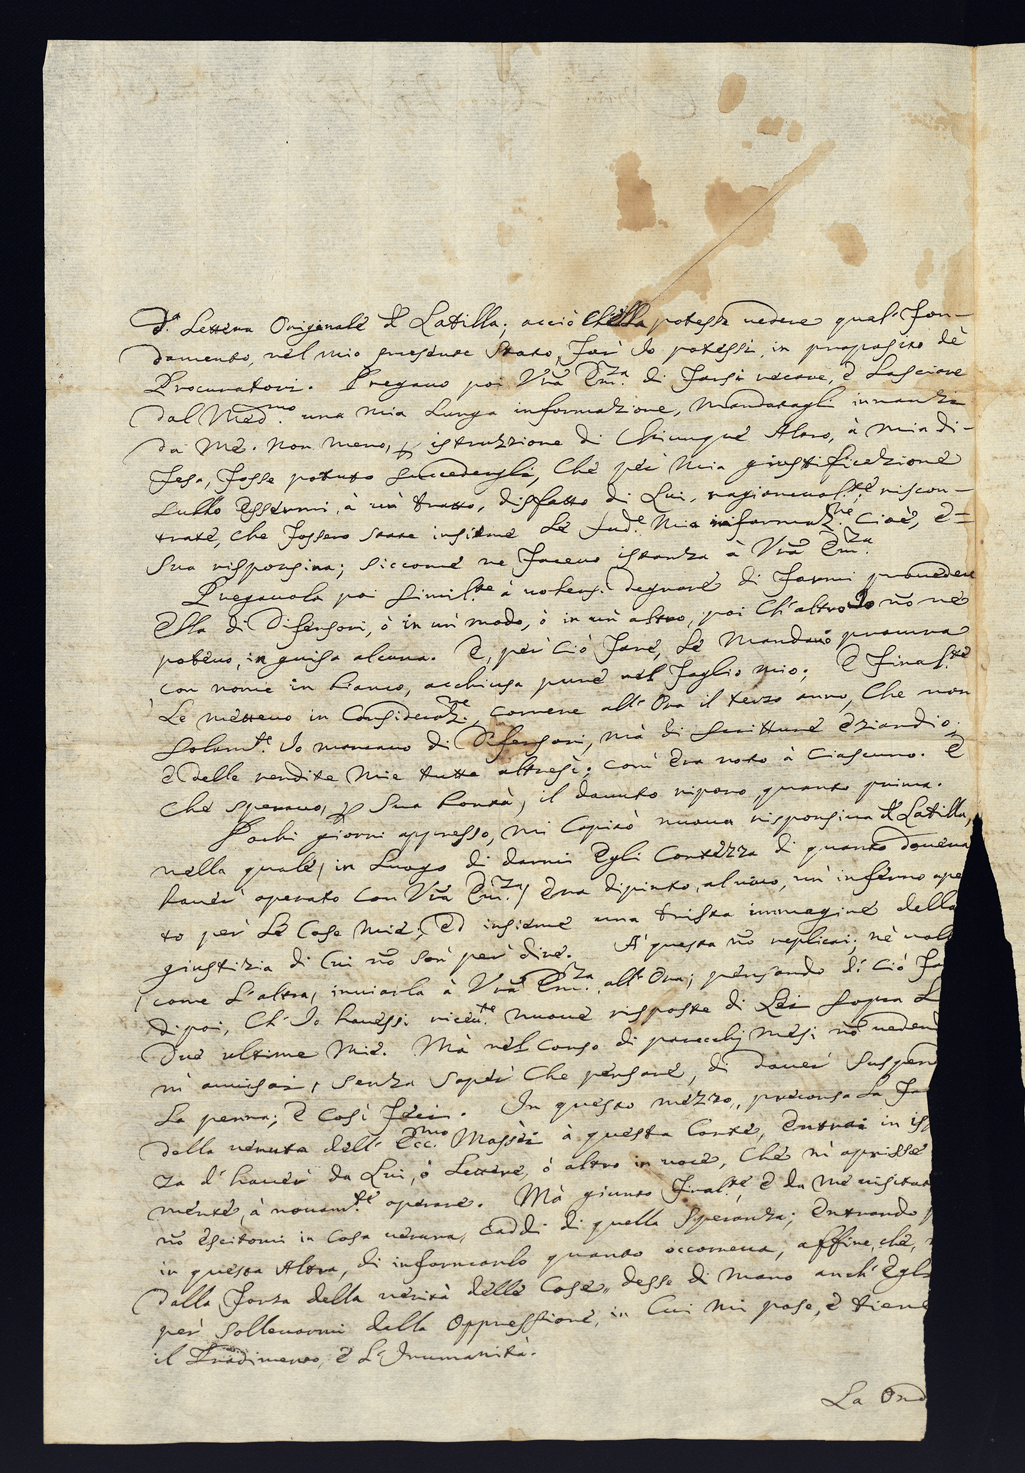 d.ª Lettera Originale d̃ Latilla; acciò Ch'ella potesse vedere quale fon-
damento, nel mio presente Stato, far' Io potessi, in proposito dè
Procuratori. Pregavo poi Vr̃a Em̃.za di farsi recare, è Lasciare
dal Med.mo una mia Lunga informazione, Mandatagli innanzi
da Me. Non meno, ꝑ istruzzione di Chiunque Altro, à mia di-
fesa, fosse potuto Succedergli, Che per Mia giustificazione
Sullo Essermi, à un' tratto, disfatto di Lui. ragionevol.te riscon-
trate, che fossero state insieme Le sud.e Mia informaz.ne Cioè, è=
Sua risponsiva; siccome ne facevo istanza à Vr̃a Em̃.za
Pregavola poi Simil.te à volersi degnare di farmi provedere
Ella di Difensori, ò in un' modo, ò in un' altro, poi Ch' altro Io nõ ne
potevo, in guisa alcuna. E, per Ciò fare, Le Mandavo procura
con nome in bianco, acchiusa pure nel foglio mio; E final.te
Le mettevo in Consideraz.ne, correre all' Ora il terzo anno, Che non
Solam.te Io mancavo di Difensori, mà di Scritture Eziandio;
è delle rendite Mie tutte altresì; com' Era noto à Ciascuno. E
Che Speravo, ꝑ Sua bontà, il dovuto riparo, quanto prima.
Pochi giorni appresso, mi Capitò nuova risponsiva d̃ Latilla,
nella quale, in Luogo di darmi Egli Contezza di quanto doveva
haver' operato con Vr̃a Em̃.za, Era dipinto, al vivo, un' inferno ape
to per Le Cose Mie; Ed insieme una trista immagine della
giustizia di Cui nõ son' per dire. A' questa nõ replicai; nè vol
(come L'altra) inviarla à Vr̃a Em̃.za all' Ora; pensando di Ciò fa
dipoi, Ch' Io havessi ricevu.te nuove risposte di Lei sopra L
due ultime Mie. Mà nel Corso di parecchj mesi nõ veden
ni avvisai, senza saper' Che pensare, di dover' Suspen
La penna; è Così feci. In questo mezzo, precorsa La fa
della venuta dell' Ecc.mo Massèi à questa Corte, Entrai in is
za d' haver' da Lui, ò Lettere, ò altro in voce, Che m' aprisse
mente, à novam.te operare. Mà giunto final.te, è da me visitat
nõ Escitomi in Cosa veruna, Caddi di quella Speranza; Entrando
in questa Altra, di informarlo quanto occorreva, affine, che,
dalla forza della verità delle Cose, desse di mano anch' Egli
per sollevarmi dalla Oppressione, in Cui mi pose, è tiene
il Tradimento, è L' Inumanità.
La Ond